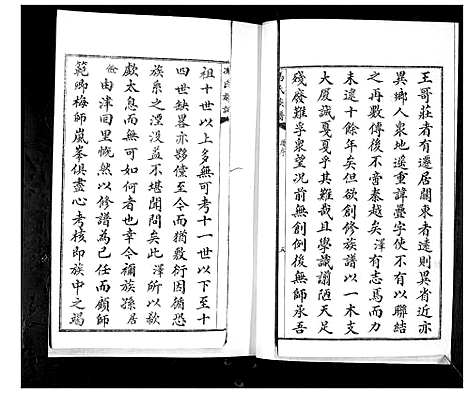 王哥莊者有遷居關東者遠則異省近亦
異鄉人衆地遙重諱疊字使不有以聯結
之再數傳後不啻秦越矣澤有志焉而力
未逮十餘年矣但欲創修族譜以一木支
大厦誠戛戛乎其難哉且學識謭陋天足
殘廢難孚衆望況前無創例後無師承吾
馮氏族譜
譜序
五
祖十世以上多無可考十一世以下至十
四世缺畧亦夥使至今而猶敷衍因循恐
族系之湮沒益不堪聞問矣此澤所以欷
歔太息而無可如何者也幸今禰族孫居
俭由津回里慨然以修譜為己任而顧師
範卿梅師嵐峯俱盡心考核即族中之竭